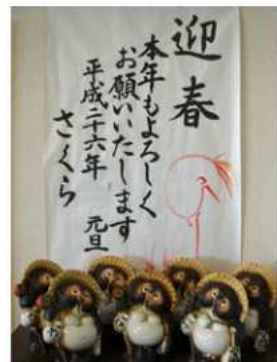 迎春
本年もよろしく
お願いいたします
平成二十六年 元旦
さくら